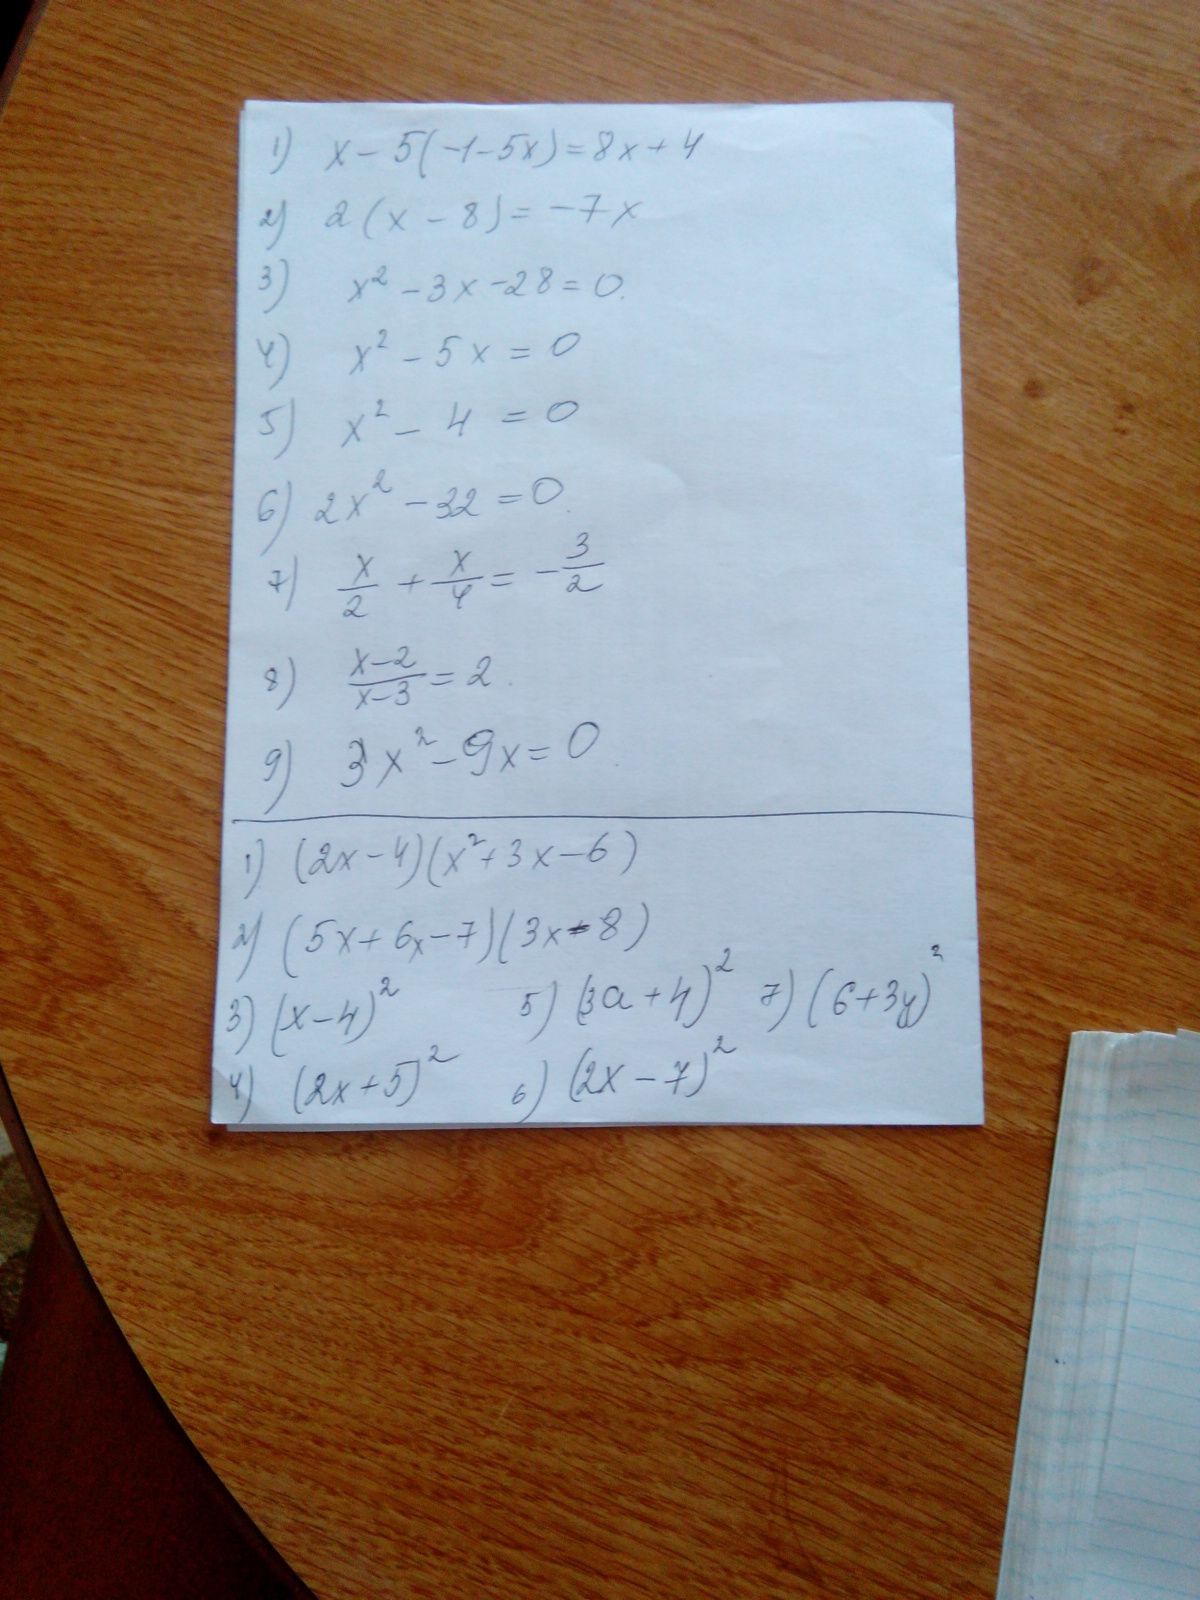 1) x - 5(-1-5x)=8x+4
2) 2(x - 8)= -7x
3) x² - 3x - 28 = 0.
4) x² - 5x = 0
5) x² - 4 = 0
6) 2x² - 32 = 0.
7) x/2 + x/4 = - 3/2
8) x-2/x-3 = 2.
9) 3x² - 9x = 0
1) (2x - 4)(x² + 3x - 6)
2) (5x + 6x - 7)(3x - 8)
3) (x - 4)² 5) (3a + 4)² 7) (6 + 3y)²
4) (2x + 5)² 6) (2x - 7)²